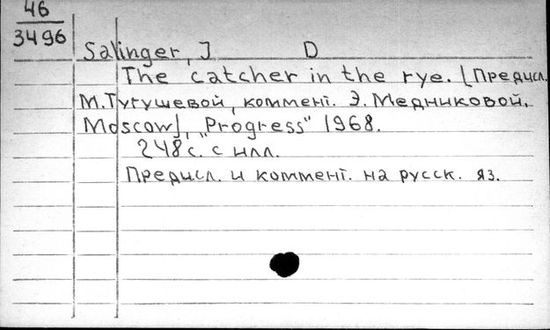 46
3496
Salinger, J D
The catcher in the rye. [Предисл.
М.Тугушевой, коммент. Э. Медниковой.
Moscow], "Progress" 1968.
248 с. с илл.
Предисл. и коммент. на русск. яз.